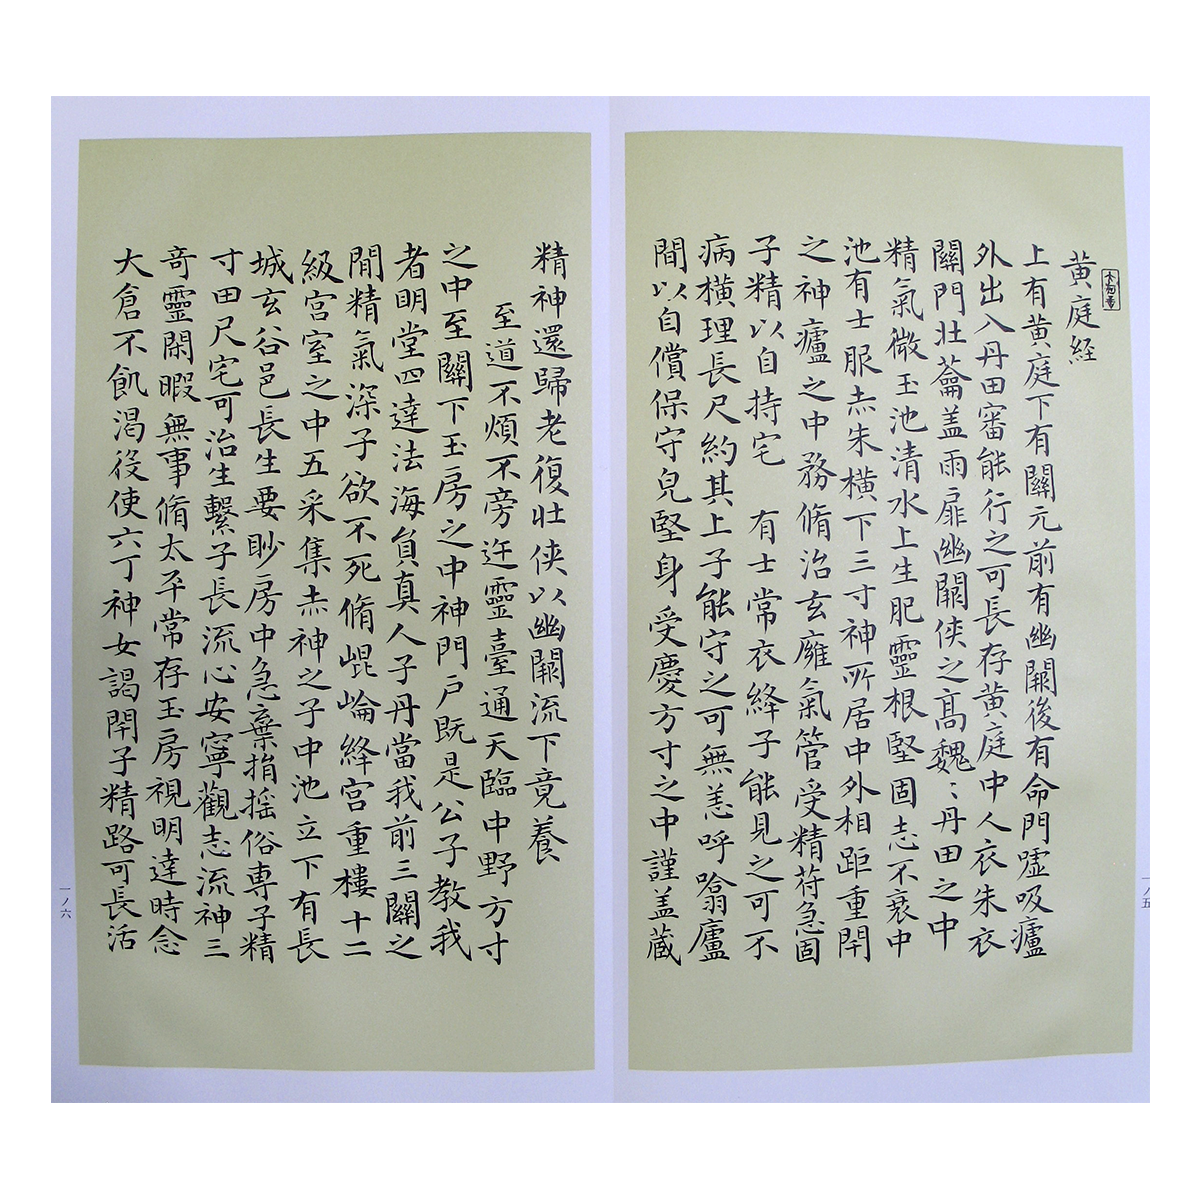 黄庭経
上有黄庭下有關元前有幽闕後有命門噓吸廬
外出入丹田審能行之可長存黄庭中人衣朱衣
關門壮蘥盖兩扉幽闕侠之髙魏〻丹田之中
精氣微玉池清水上生肥靈根堅固志不衰中
池有士服赤朱横下三寸神所居中外相距重閇
之神廬之中務脩治玄㢕氣管受精苻急固
子精以自持宅 有士常衣絳子能見之可不
病横理長尺約其上子能守之可無恙呼噏廬
間以自償保守皃堅身受慶方寸之中謹盖蔵
精神還歸老復壮侠以幽闕流下竟養
至道不煩不旁迕靈臺通天臨中野方寸
之中至關下玉房之中神門户既是公子教我
者明堂四達法海負真人子丹當我前三關之
間精氣深子欲不死脩崐崘絳宫重樓十二
級宫室之中五采集赤神之子中池立下有長
城玄谷邑長生要眇房中急棄捐摇俗専子精
寸田尺宅可治生繫子長流心安寧觀志流神三
竒靈閑暇無事脩太平常存玉房視明達時念
大倉不飢渴役使六丁神女謁閇子精路可長活
一ノ五
一ノ六